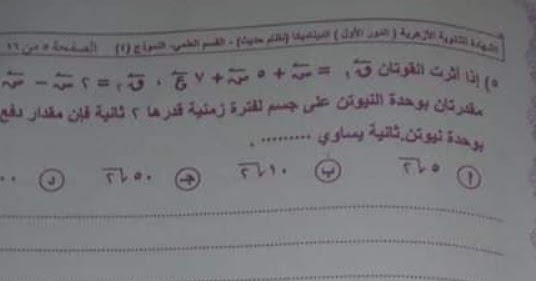 الشهادة الثانوية الأزهرية ( الدور الأول ) الديناميكا (نظام حديث) - القسم العلمي- النموذج (٤) الصفحة ٥ من ١٦
٥) إذا أثرت القوتان ق١ = س + ٥ ص + ٧ ع ، ق٢ = ٢ س - ص
مقدرتان بوحدة النيوتن على جسم لفترة زمنية قدرها ٢ ثانية فإن مقدار دفع
بوحدة نيوتن.ثانية يساوي .......... .
أ ٥√٢ ب ١٠√٢ ج ٥٠√٢ د ٠٠